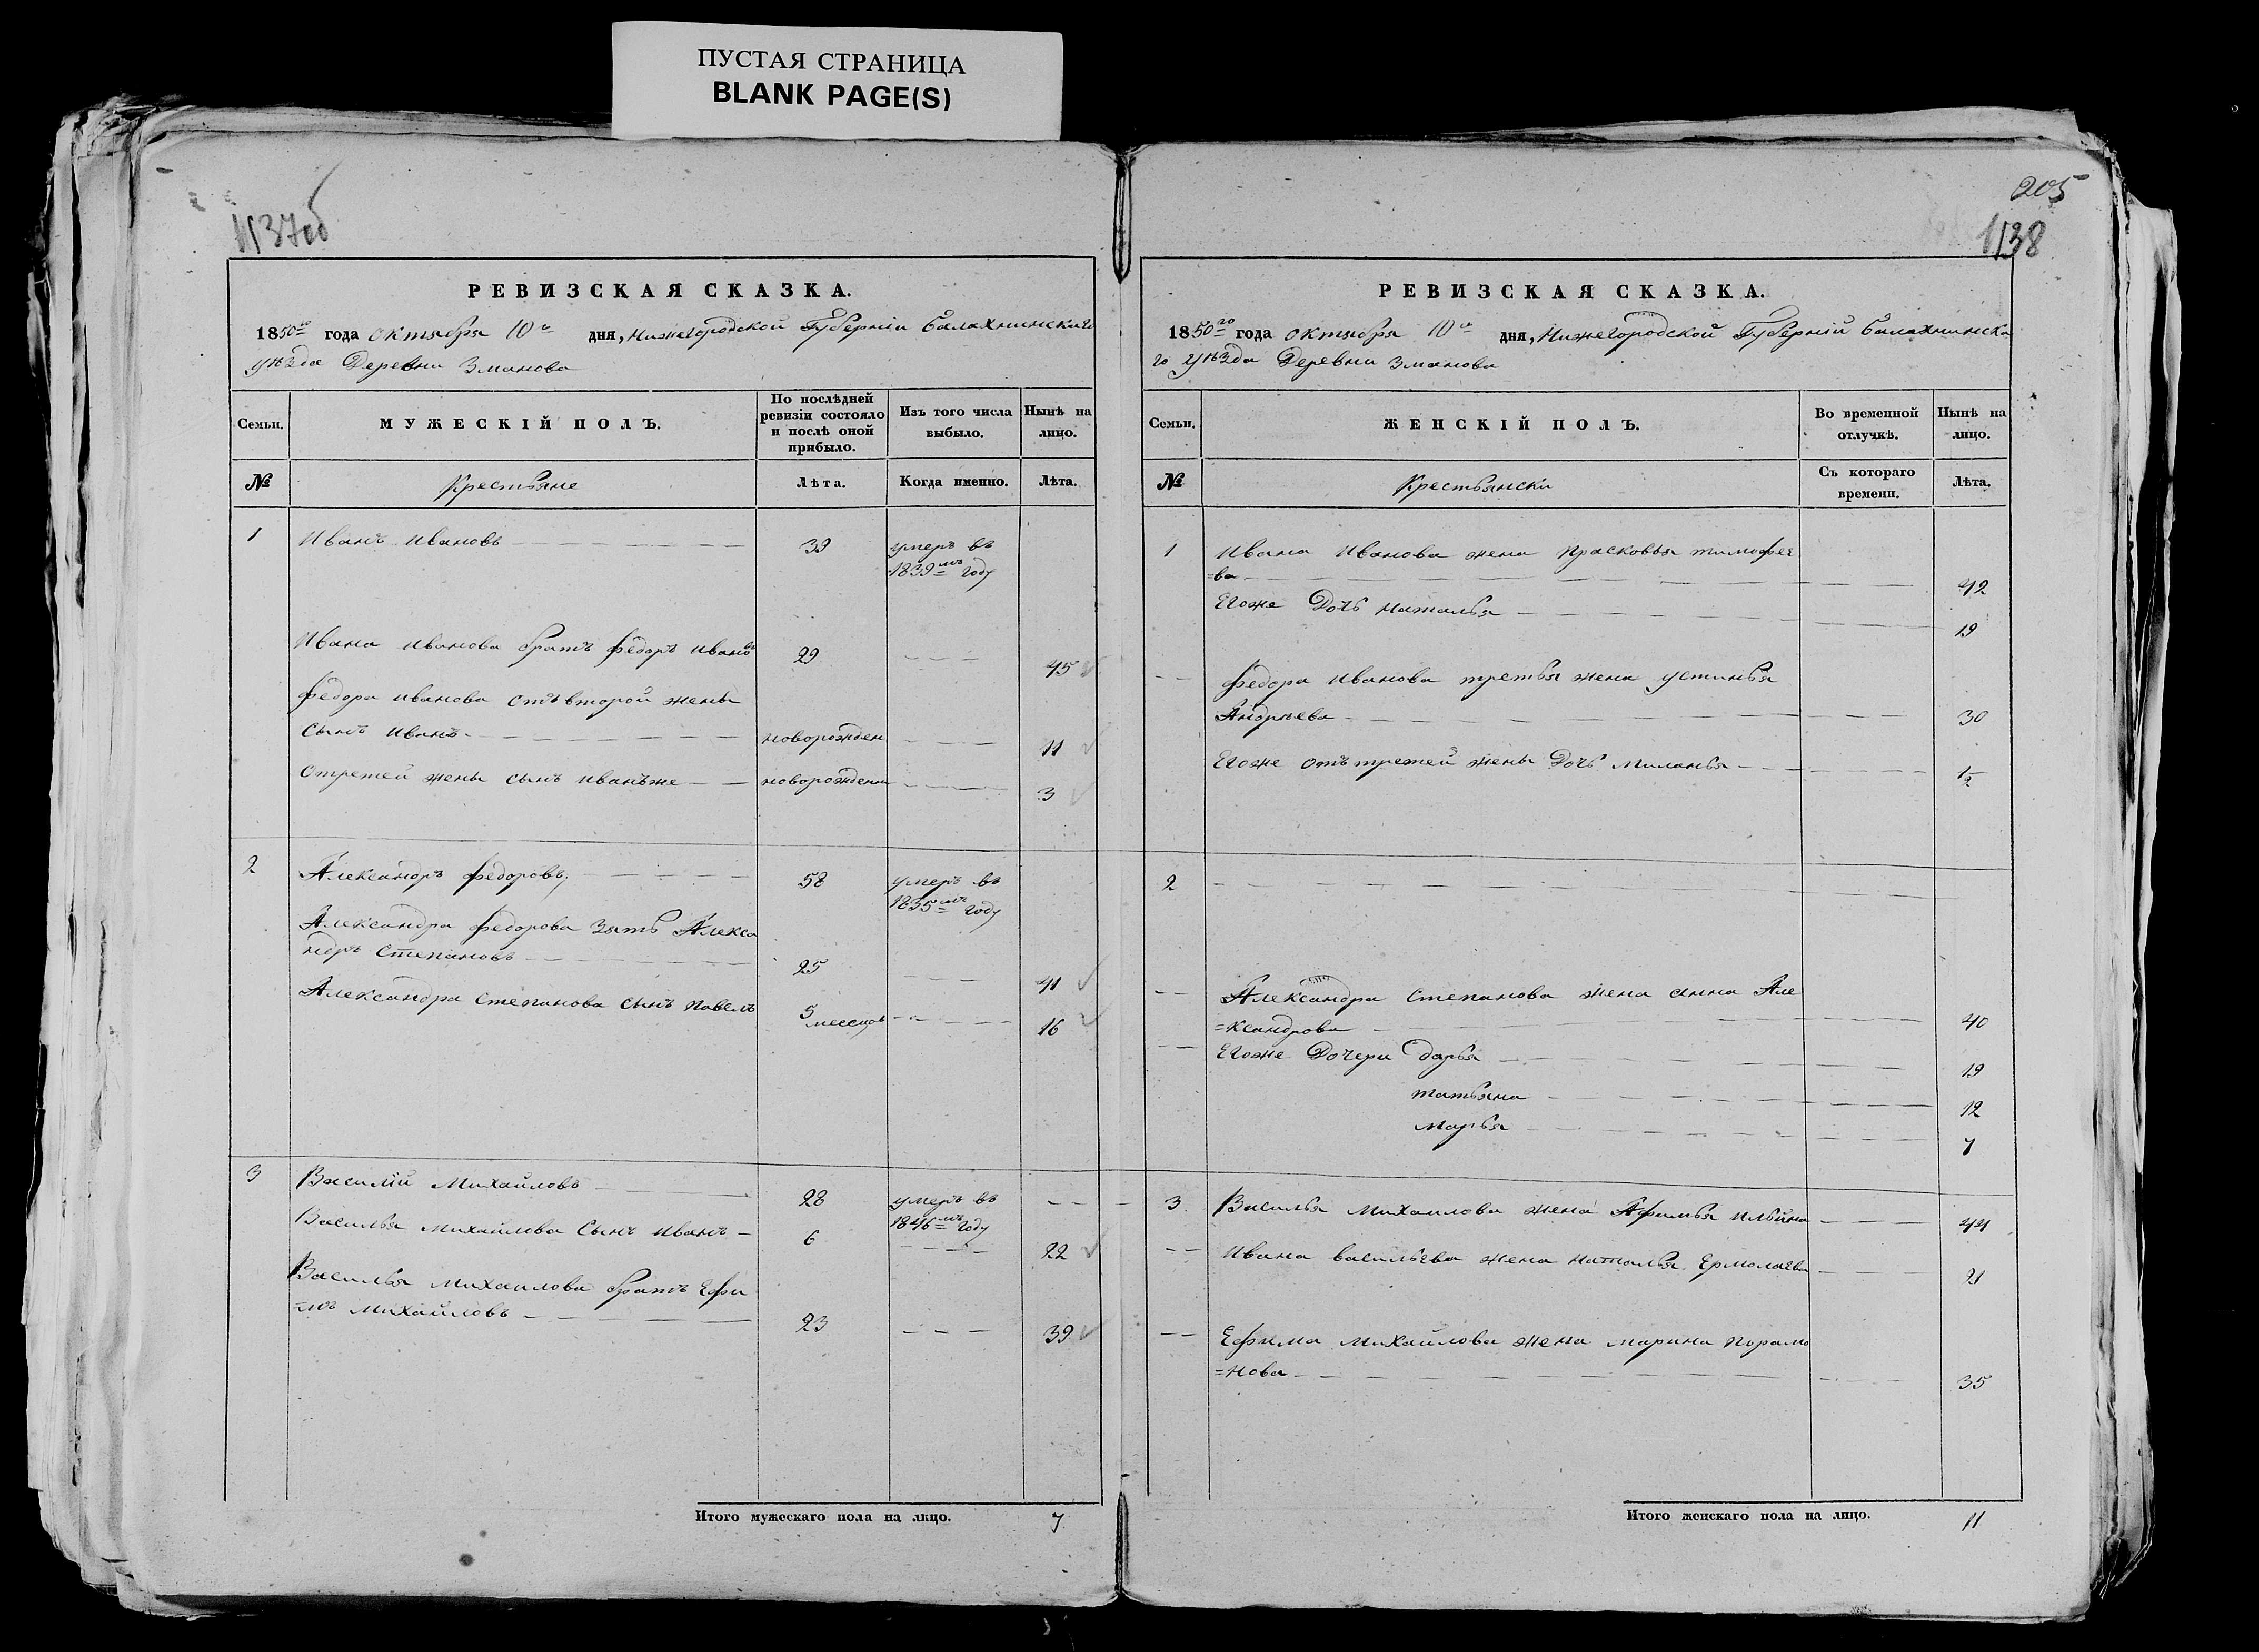 ПУСТАЯ СТРАНИЦА
BLANK PAGE(S)
1137об
РЕВИЗСКАЯ СКАЗКА.
1850го года октября 10го дня, Нижегородской Губерніи Балахнинскаго
уѣзда Деревни Зманова
Семьи.
МУЖЕСКІЙ ПОЛЪ.
По послѣдней ревизіи состояло и послѣ оной прибыло.
Изъ того числа выбыло.
Нынѣ на лицо.
№
Крестьяне
Лѣта.
Когда именно.
Лѣта.
1 Иванъ Ивановъ 39 умеръ въ
1839мъ году
Ивана Иванова братъ федоръ Ивановъ 29 45
федора Иванова отъ второй жены
сынъ Иванъ новорожден 11
Отретей жены сынъ Иванъже новорожденн 3
2 Александръ федоровъ 58 умеръ въ
1835мъ году
Александра федорова зять Алекса
ндръ Степановъ 25 41
Александра Степанова сынъ Павелъ 5 месецов 16
3 Василій Михайловъ 28 умеръ въ
1846мъ году
Василья Михайлова Сынъ Иванъ 6 22
Василья Михаилова братъ Ефи
=мъ Михайловъ 23 39
Итого мужескаго пола на лицо. 7
205
1138
РЕВИЗСКАЯ СКАЗКА.
1850го года октября 10го дня, Нижегородской Губерній Балахнинска
го уѣзда Деревни Зманова
Семьи.
ЖЕНСКІЙ ПОЛЪ.
Во временной отлучкѣ.
Нынѣ на лицо.
№
Крестьянски
Съ котораго времени.
Лѣта.
1 Ивана Иванова жена Прасковья тимофее
=ва 42
Егоже Дочь Наталья 19
федора Иванова третья жена устинья
Андрѣева 30
Егоже отъ третей жены Дочь Миланья 1/2
2
Александра Степанова жена анна Але
=ксандрова 40
Егоже Дочери дарья 19
татьяна 12
марья 7
3. Василья Михаилова жена Афимья Ильйна 44
Ивана васильева жена наталья Ермолаева 21
Ефима Михайлова жена марина Парамо
=нова 35
Итого женскаго пола на лицо. 11